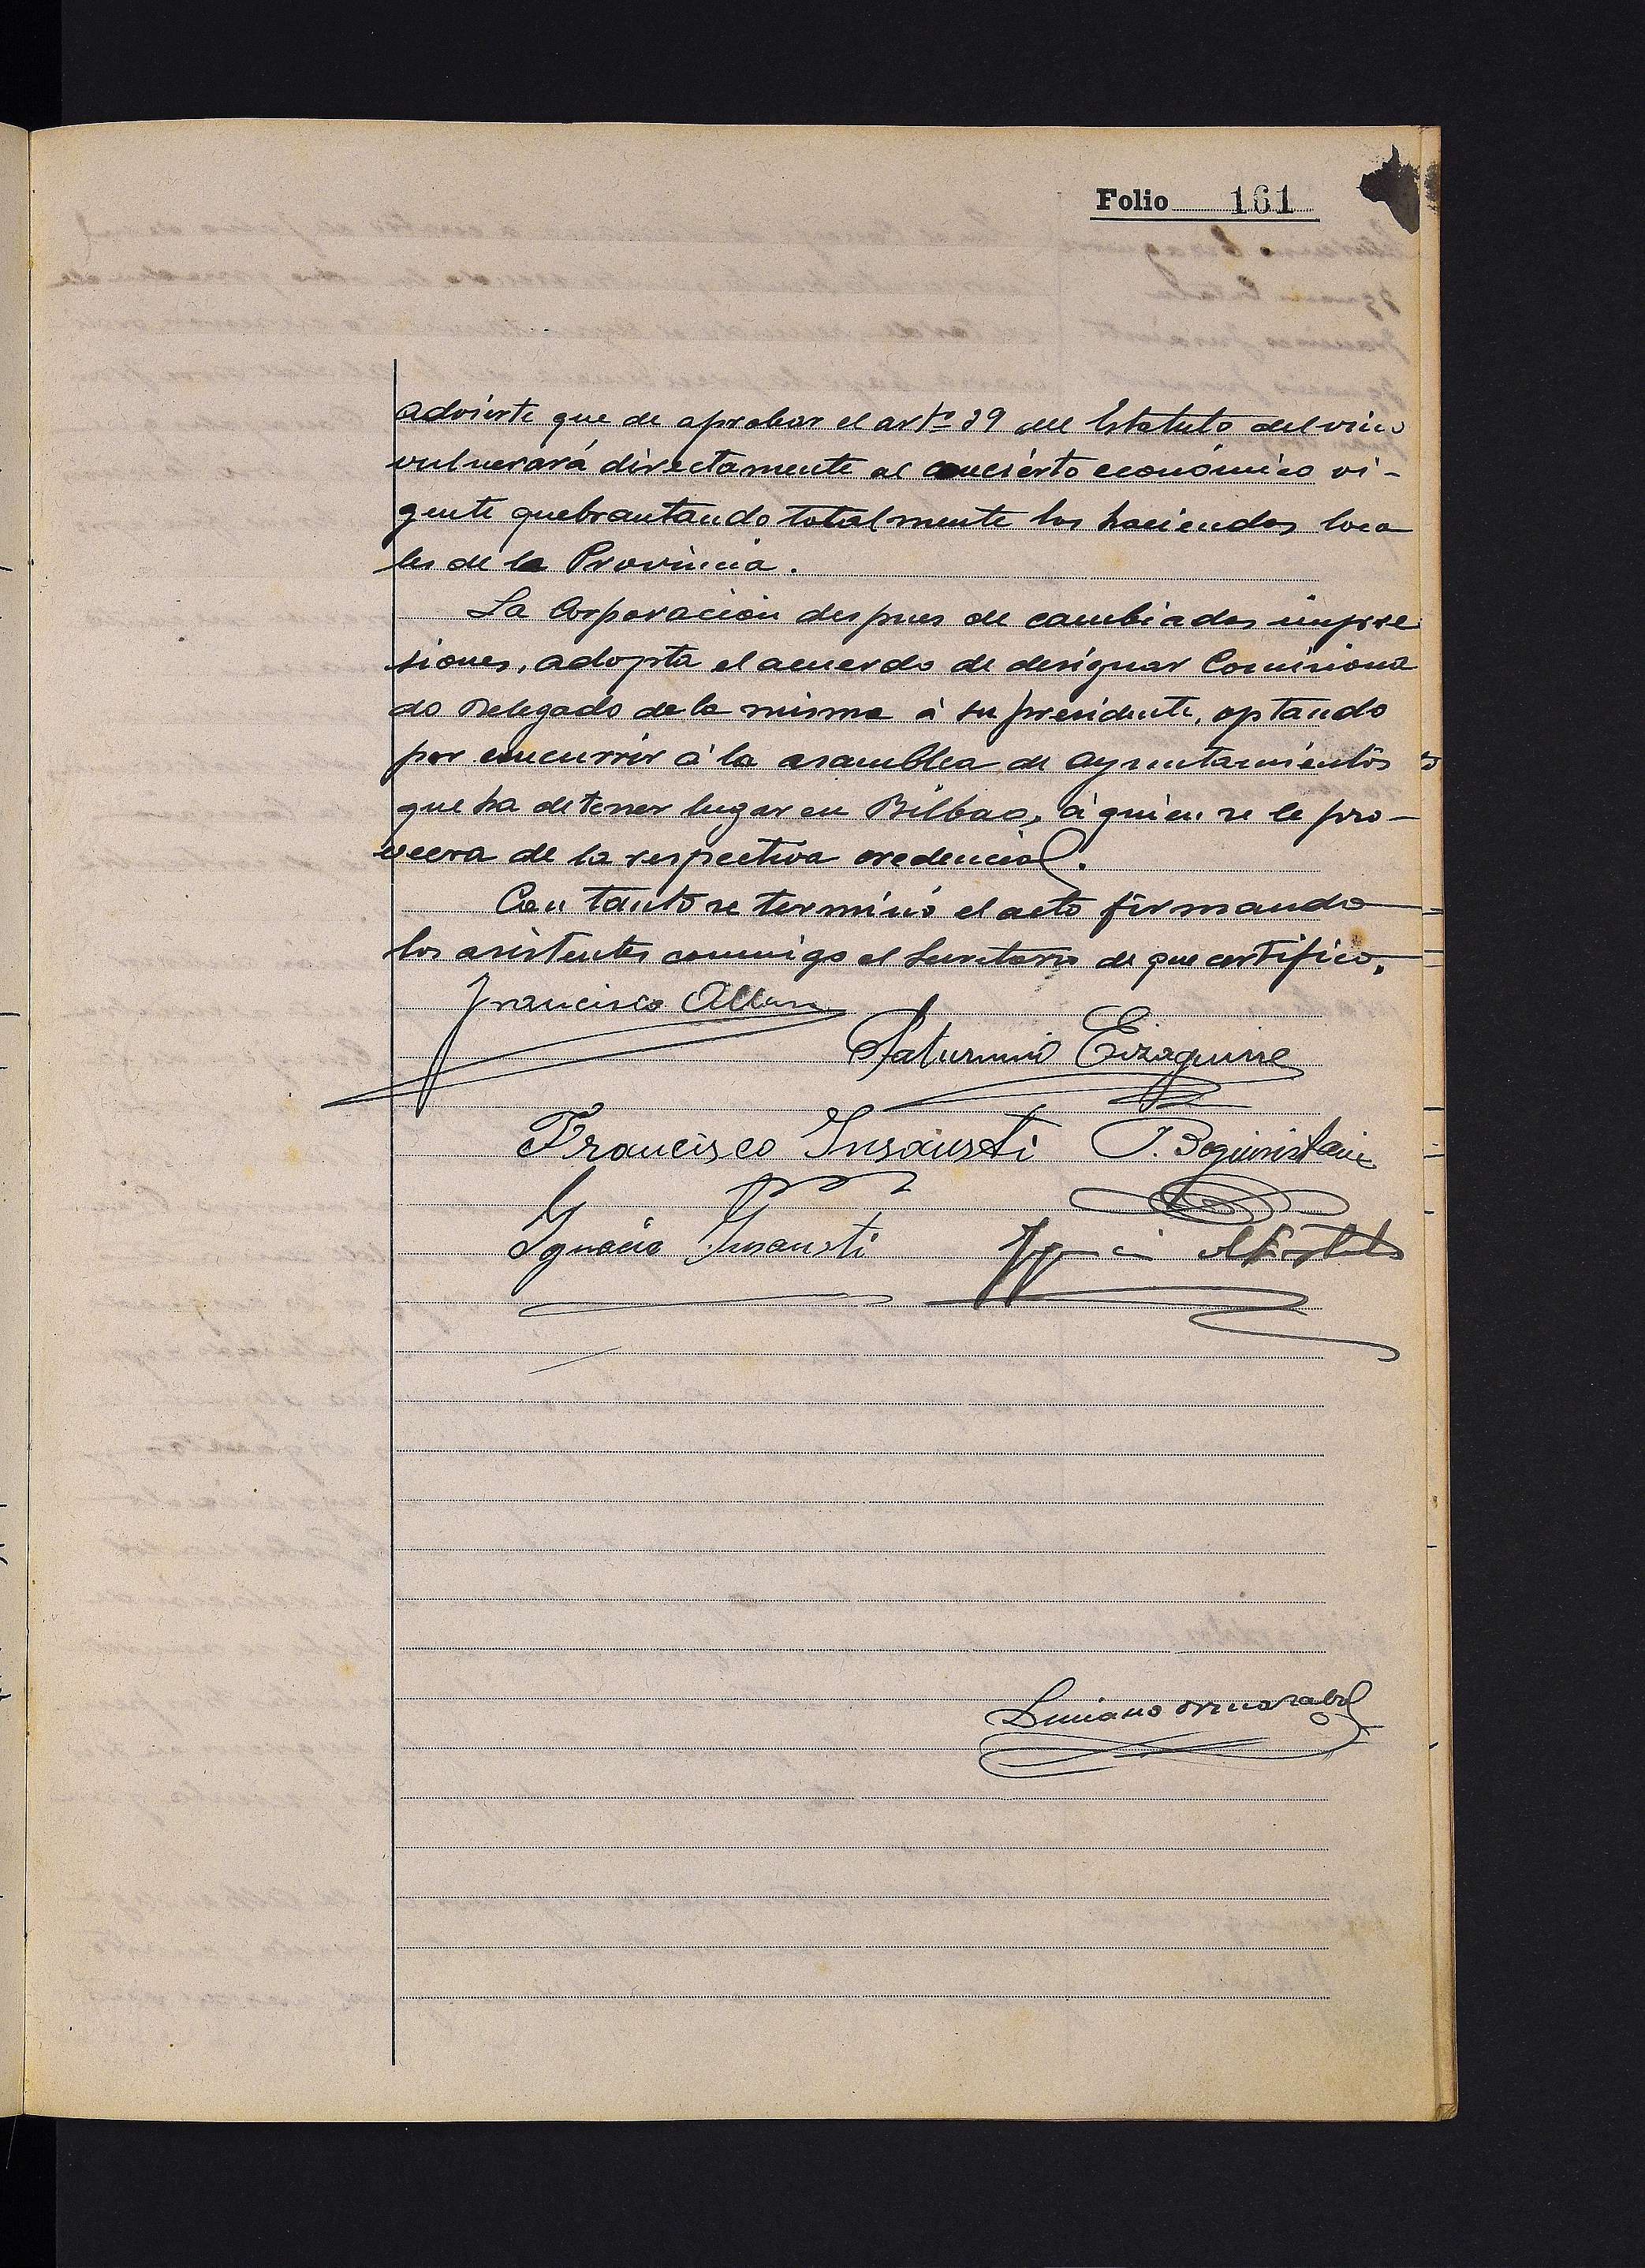 Folio 161
advierte que de aprobar el artº 39 del Estatuto del vino
vulnerará directamente al concierto económico vi-
gente quebrantando totalmente las haciendas loca
les de la Provincia.
La Corporación despues de cambiadas impre
siones, adopta el acuerdo de designar Comisiona
do Delegado de la misma á su presidente, optando
por concurrir á la asamblea de Ayuntamientos
que ha de tener lugar en Bilbao, á quien se le pro-
veera de la respectiva credencial.
Con tanto se terminó el acto firmando
los asistentes conmigo el Secretario de que certifico.
Francisco
Saturnino Eizaguirre
Francisco Insausti J. Beguiristain
Ignacio Insausti
Luciano